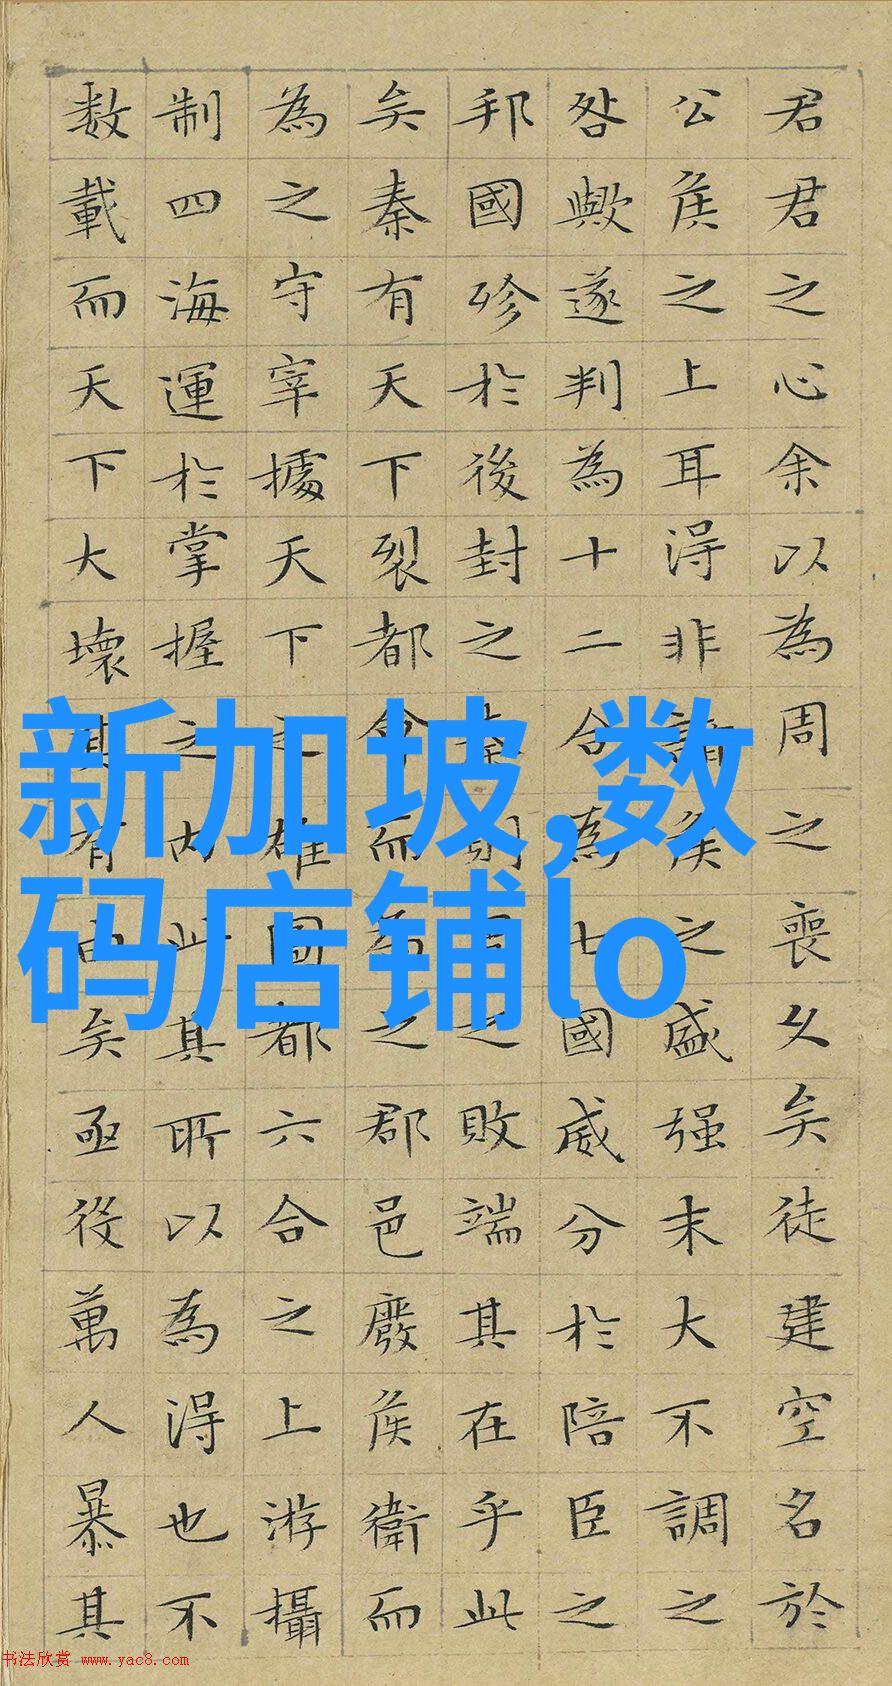 君君之心余以為周之喪久矣徒建空名於
公侯之上耳得非諸侯之盛强末大不調之
咎歟遂判為十二合為七國威分於陪臣之
邦國殄於後封之秦則周之敗端其在乎此
矣秦有天下裂都會而為之郡邑廢侯衛而
為之守宰據天下之雄圖都六合之上游攝
制四海運於掌握之内此其所以為得也不
数載而天下大壞其有由矣亟役萬人暴其
新加坡,数
码店铺lo
书法欣赏 www.yac8.com